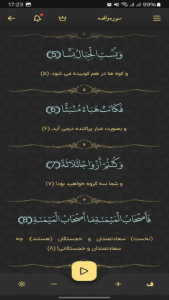 17:23
سوره واقعه
وَبُسَّتِ الْجِبَالُ بَسًّا (5)
و کوه ها در هم کوبیده می شود. (۵)
فَكَانَتْ هَبَاءً مُنْبَثًّا (6)
و بصورت غبار پراکنده درمی آید، (۶)
وَكُنْتُمْ أَزْوَاجًا ثَلَاثَةً (7)
و شما سه گروه خواهید بود! (۷)
فَأَصْحَابُ الْمَيْمَنَةِ مَا أَصْحَابُ الْمَيْمَنَةِ (8)
(نخست) سعادتمندان و خجستگان (هستند)؛ چه
سعادتمندان و خجستگانی! (۸)
ف